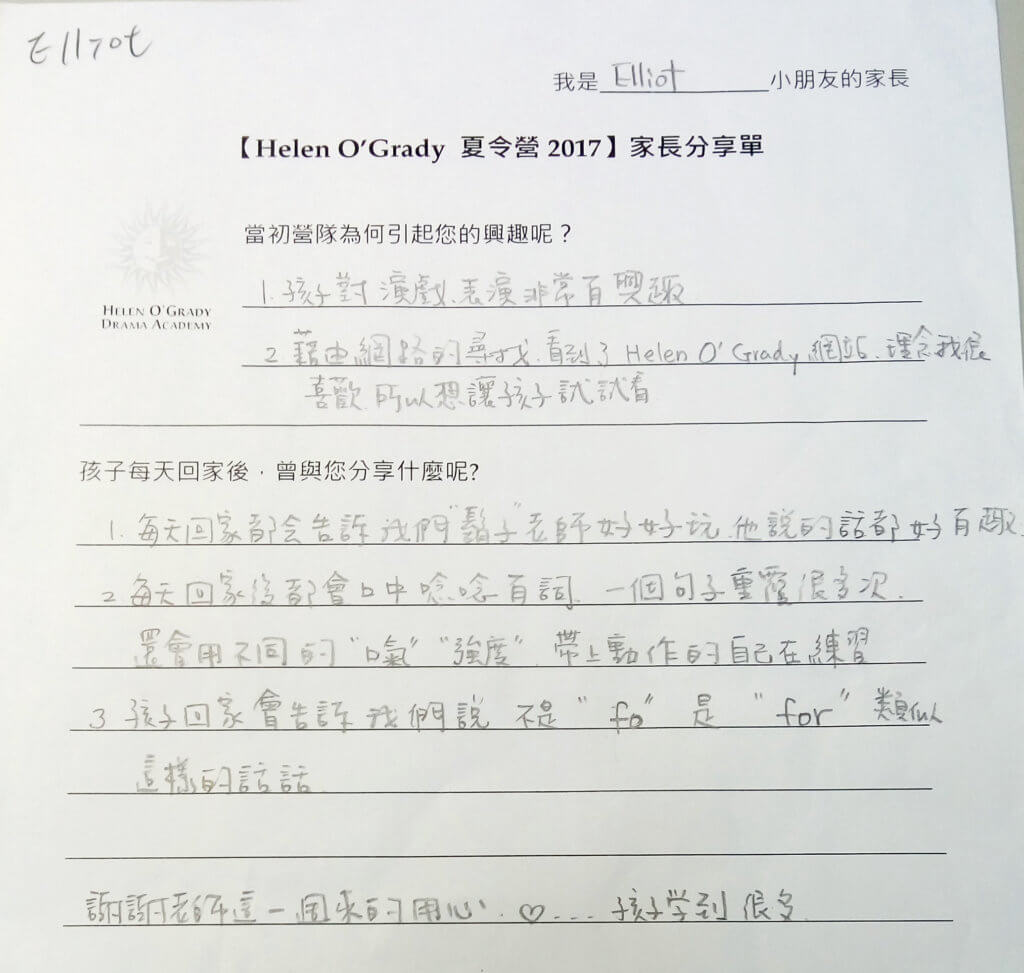 Elliot
我是 Elliot 小朋友的家長
【Helen O'Grady 夏令營 2017】家長分享單
當初營隊為何引起您的興趣呢？
1. 孩子對演戲、表演非常有興趣
HELEN O'GRADY
DRAMA ACADEMY
2. 藉由網路的尋找，看到了 Helen O' Grady 網站、理念我很
喜歡，所以想讓孩子試試看
孩子每天回家後，曾與您分享什麼呢?
1. 每天回家都会告訴我們"鬍子"老師好好玩，他說的話都好有趣
2. 每天回家後都會口中唸唸有詞，一個句子重覆很多次，
還會用不同的"口氣""強度"，帶上動作的自己在練習
3. 孩子回家會告訴我們說 不是 "fo" 是 "for" 類似
這樣的話話
謝謝老師這一週來的用心、♡... 孩子学到很多